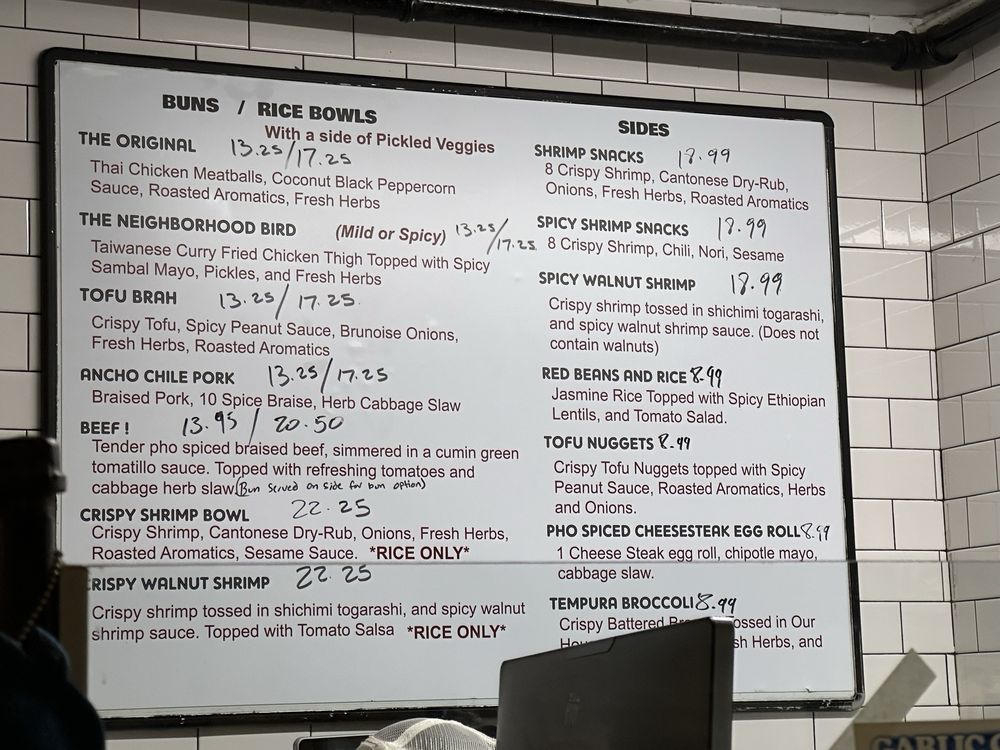 BUNS / RICE BOWLS
With a side of Pickled Veggies
THE ORIGINAL 13.25/17.25
Thai Chicken Meatballs, Coconut Black Peppercorn
Sauce, Roasted Aromatics, Fresh Herbs
THE NEIGHBORHOOD BIRD (Mild or Spicy) 13.25/17.25
Taiwanese Curry Fried Chicken Thigh Topped with Spicy
Sambal Mayo, Pickles, and Fresh Herbs
TOFU BRAH 13.25/17.25
Crispy Tofu, Spicy Peanut Sauce, Brunoise Onions,
Fresh Herbs, Roasted Aromatics
ANCHO CHILE PORK 13.25/17.25
Braised Pork, 10 Spice Braise, Herb Cabbage Slaw
BEEF! 13.95 / 20.50
Tender pho spiced braised beef, simmered in a cumin green
tomatillo sauce. Topped with refreshing tomatoes and
cabbage herb slaw (Bun served on side for bun option)
CRISPY SHRIMP BOWL 22.25
Crispy Shrimp, Cantonese Dry-Rub, Onions, Fresh Herbs,
Roasted Aromatics, Sesame Sauce. *RICE ONLY*
CRISPY WALNUT SHRIMP 22.25
Crispy shrimp tossed in shichimi togarashi, and spicy walnut
shrimp sauce. Topped with Tomato Salsa *RICE ONLY*
SIDES
SHRIMP SNACKS 18.99
8 Crispy Shrimp, Cantonese Dry-Rub,
Onions, Fresh Herbs, Roasted Aromatics
SPICY SHRIMP SNACKS 18.99
8 Crispy Shrimp, Chili, Nori, Sesame
SPICY WALNUT SHRIMP 18.99
Crispy shrimp tossed in shichimi togarashi,
and spicy walnut shrimp sauce. (Does not
contain walnuts)
RED BEANS AND RICE 8.99
Jasmine Rice Topped with Spicy Ethiopian
Lentils, and Tomato Salad.
TOFU NUGGETS 8.99
Crispy Tofu Nuggets topped with Spicy
Peanut Sauce, Roasted Aromatics, Herbs
and Onions.
PHO SPICED CHEESESTEAK EGG ROLL 8.99
1 Cheese Steak egg roll, chipotle mayo,
cabbage slaw.
TEMPURA BROCCOLI 8.99
Crispy Battered ossed in Our
sh Herbs, and